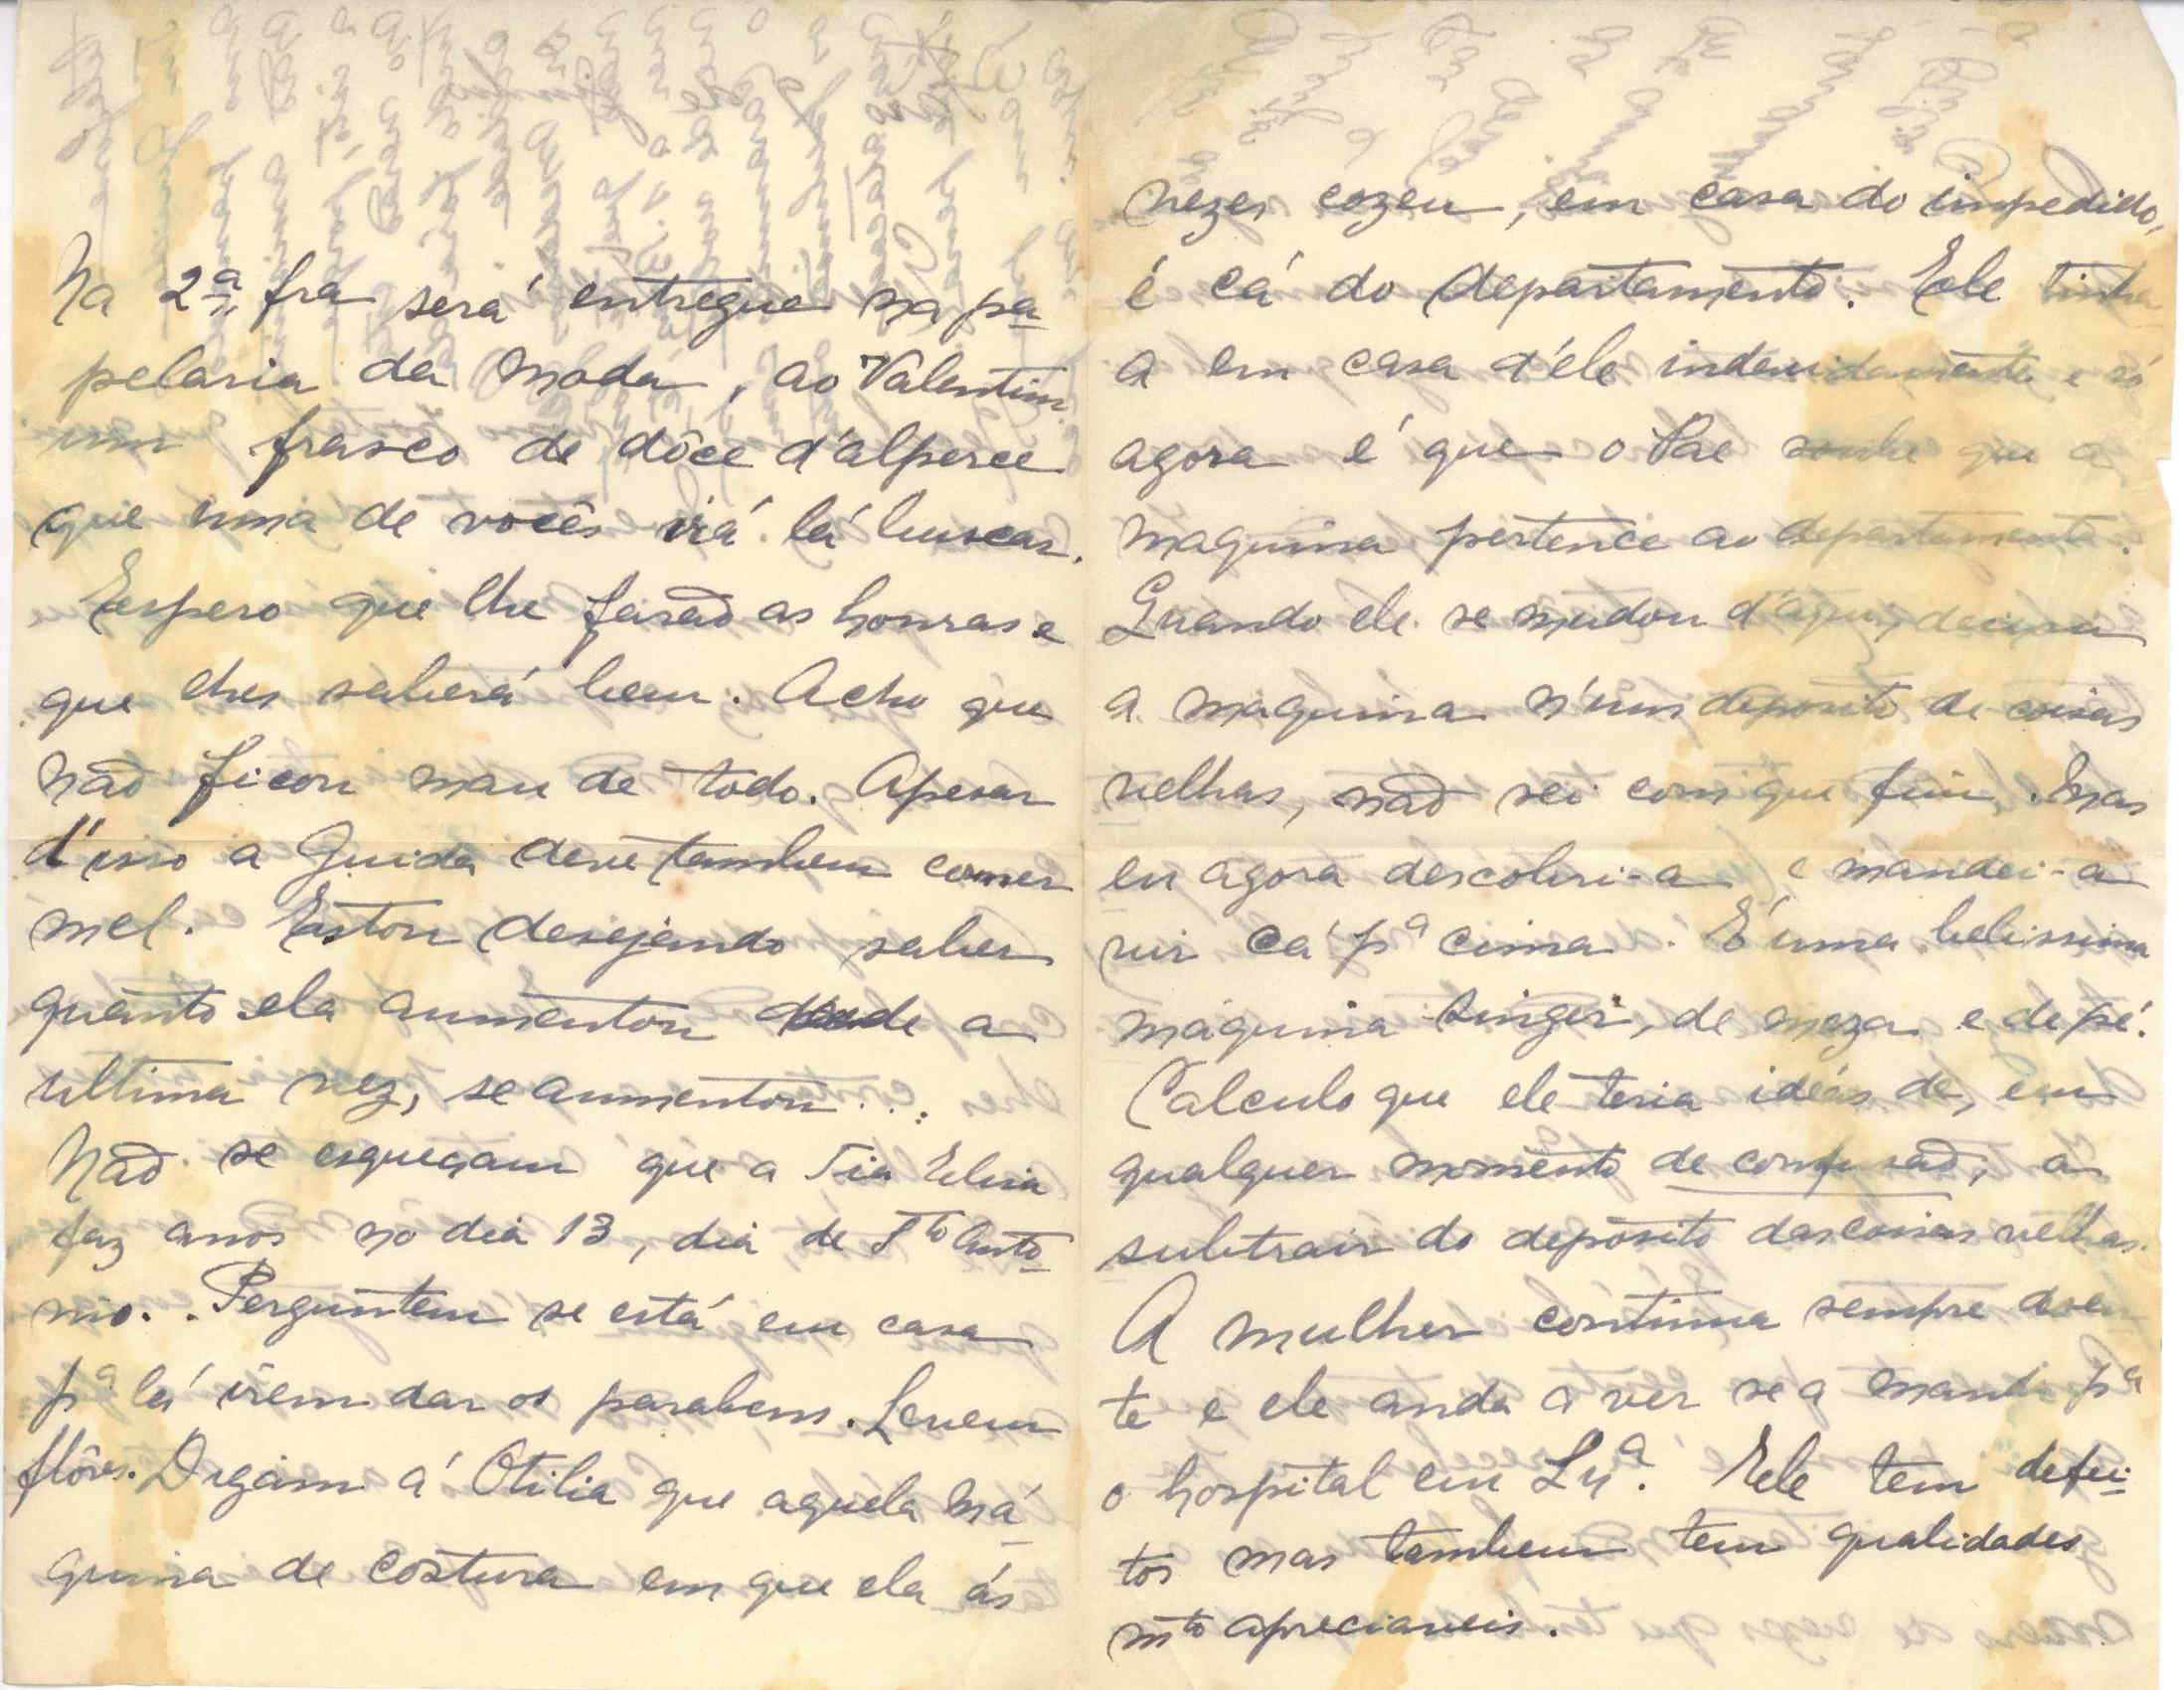 Na 2ª fra será entregue na pa-
pelaria da Moda, ao Valentim
um frasco de dôce d'alperce
que uma de vocês irá lá buscar.
Espero que lhe fasaõ as honras e
que lhes saberá bem. Acho que
naõ ficou mau de todo. Apesar
d'isso a Guida deve tambem comer
mel. Estou desejando saber
quanto ela aumentou desde a
ultima vez, se aumentou...
Naõ se esqueçam que a Tia Elisa
faz anos no dia 13, dia de Sto Anto-
nio. Perguntem se está em casa
pª lá irem dar os parabens. Levem
flôres. Digam á Otilia que aquela má-
quina de costura em que ela ás
vezes cozeu, em casa do impedido,
é cá do departamento. Ele tinha-
a em casa d'ele indevidamente e só
agora é que o Pae soube que a
maquina pertence ao departamento.
Quando ele se mudou d'aqui, deixou
a maquina n'um deposito de coisas
velhas, naõ sei com que fim. Mas
eu agora descobri-a e mandei-a
vir cá pª cima. É uma belissima
maquina Singer, de meza e de pé.
Calculo que ele teria idéas de, em
qualquer momento de confusaõ, a
subtrair do deposito das coisas velhas.
A mulher continua sempre doen-
te e ele anda a ver se a manda pª
o hospital em Lxª. Ele tem defei-
tos mas tambem tem qualidades
mto apreciaveis.